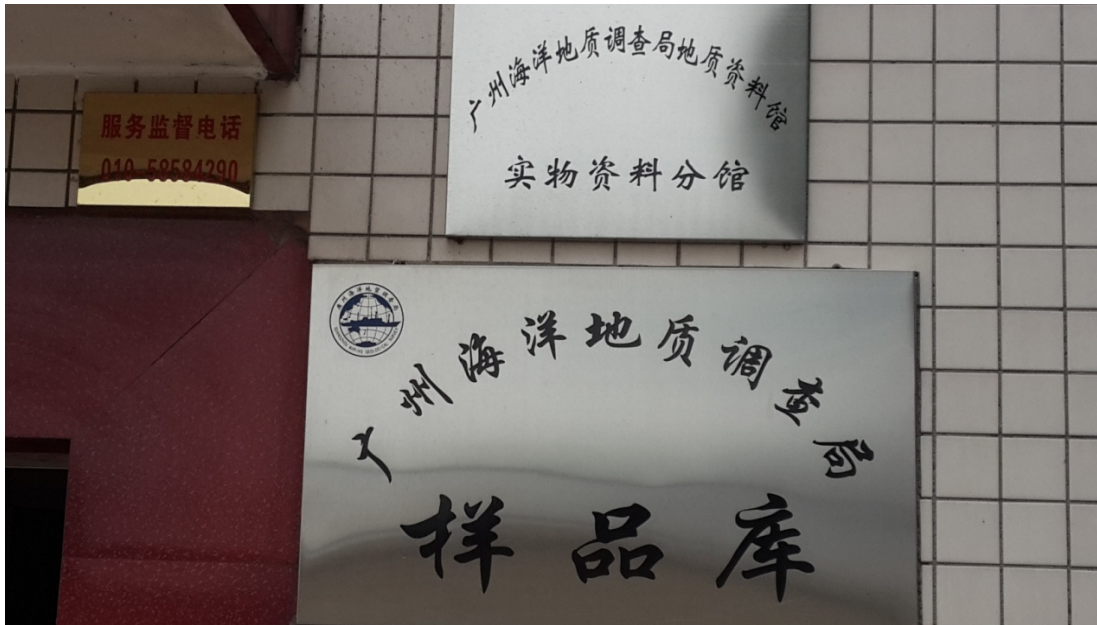 服务监督电话
010-58584290
广州海洋地质调查局地质资料馆
实物资料分馆
广州海洋地质调查局
广州海洋地质调查局
样品库